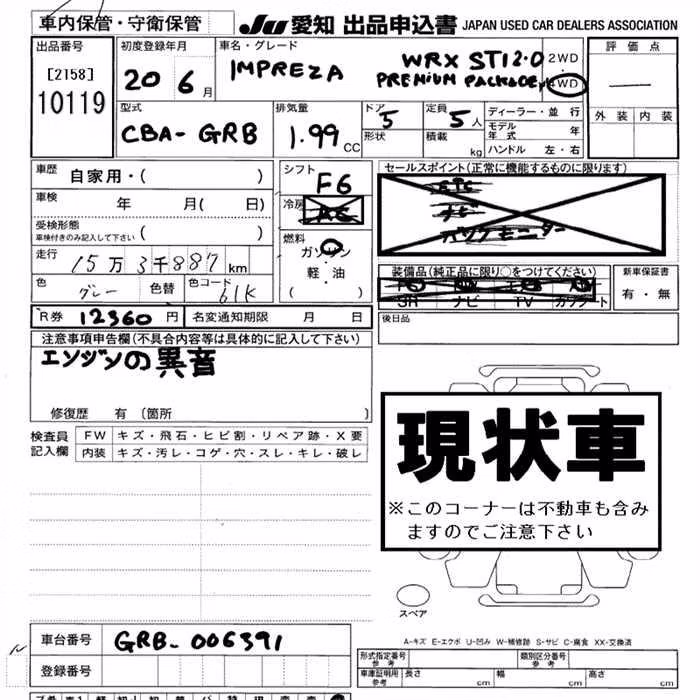 車内保管・守衛保管 JU 愛知 出品申込書 JAPAN USED CAR DEALERS ASSOCIATION
出品番号 初度登録年月 車名・グレード 評価点
[2158] 20 6月 IMPREZA WRX STI 2.0 2WD
10119 PREMIUM PACKAGE 4WD
型式 排気量 ドア 定員 ディーラー・並行 外装 内装
CBA-GRB 1.99CC 5 5人 モデル年式 年
形状 積載 kg ハンドル 左・右
車歴 自家用・( ) シフト F6 セールスポイント(正常に機能するものに限ります)
車検 年 月( 日) 冷房 AC ETC
受検形態 ナビ
車検付きのみ記入して下さい ( ) 燃料 バックモニター
走行 15万3千887km ガソリン
軽・油 装備品(純正品に限り○をつけてください) 新車保証書
色 グレー 色替 色コード 61K ( ) SR ナビ TV カセット 有・無
R券 12360円 名変通知期限 月 日 後日品
注意事項申告欄(不具合内容等は具体的に記入して下さい)
エンジンの異音
修復歴 有 〔箇所 〕
検査員 FW キズ・飛石・ヒビ割・リペア跡・X要
記入欄 内装 キズ・汚レ・コゲ・穴・スレ・キレ・破レ
現状車
※このコーナーは不動車も含み
ますのでご注意下さい
スペア
A-キズ E-エクボ U-凹み W-補修跡 S-サビ C-腐食 XX-交換済
車台番号 GRB-006391
形式指定番号 参考 類別区分番号 参考
登録番号 車庫証明用 参考 長さ cm 幅 cm 高さ cm